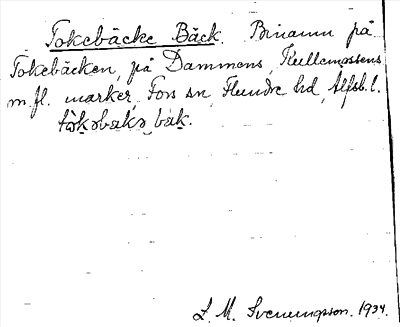 Tokebäcke Bäck. Binamn på
Tokebäcken, på Dammens, Kullemossens
m.fl. marker, Fors sn, Flundre hd, Älfsb. l.
tòkəbækə bæk.
S. M. Svenungsson. 1934.